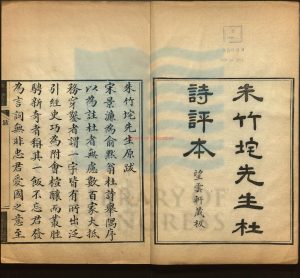 朱竹垞先生杜
詩評本
望雲軒藏板
朱竹垞先生原跋
宋景濂為俞默翁杜詩舉隅序
以為註杜者無慮數百家大抵
務穿鑿者謂一字皆有所出泛
引經史巧為附會楦釀而叢脞
騁新奇者稱其一飯不忘君發
為言詞無非忠君愛國之意至
跋